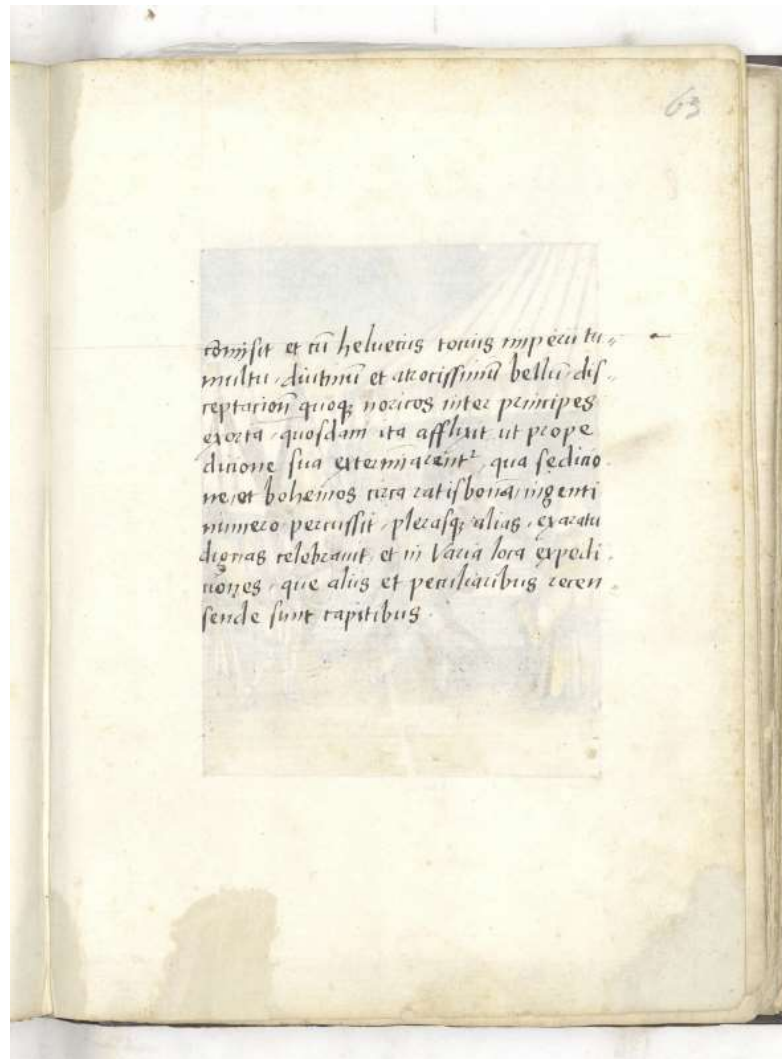 63
com̄isit et cū helvecius tocius imperii tu„
multu, diutinū et atrocissimū bellū, dis„
ceptacioñ quoqꝫ noricos inter principes
exorta, quosdam ita afflixit ut prope
dicione sua extermīarent², qua sedicio
ne, et bohemos circa ratisbonā, ingenti
numero percussit, plerasqꝫ alias, exaratu
dignas celebravit, et in Varia loca expedi„
ciones, que aliis et peculiaribus recen„
sende sunt capitibus.